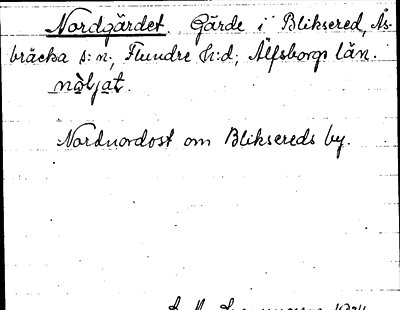 Nordgärdet. Gärde i Bliksered, Ås-
bräcka s:n, Flundre h:d, Älfsborgs län.
Nordnordost om Bliksereds by.